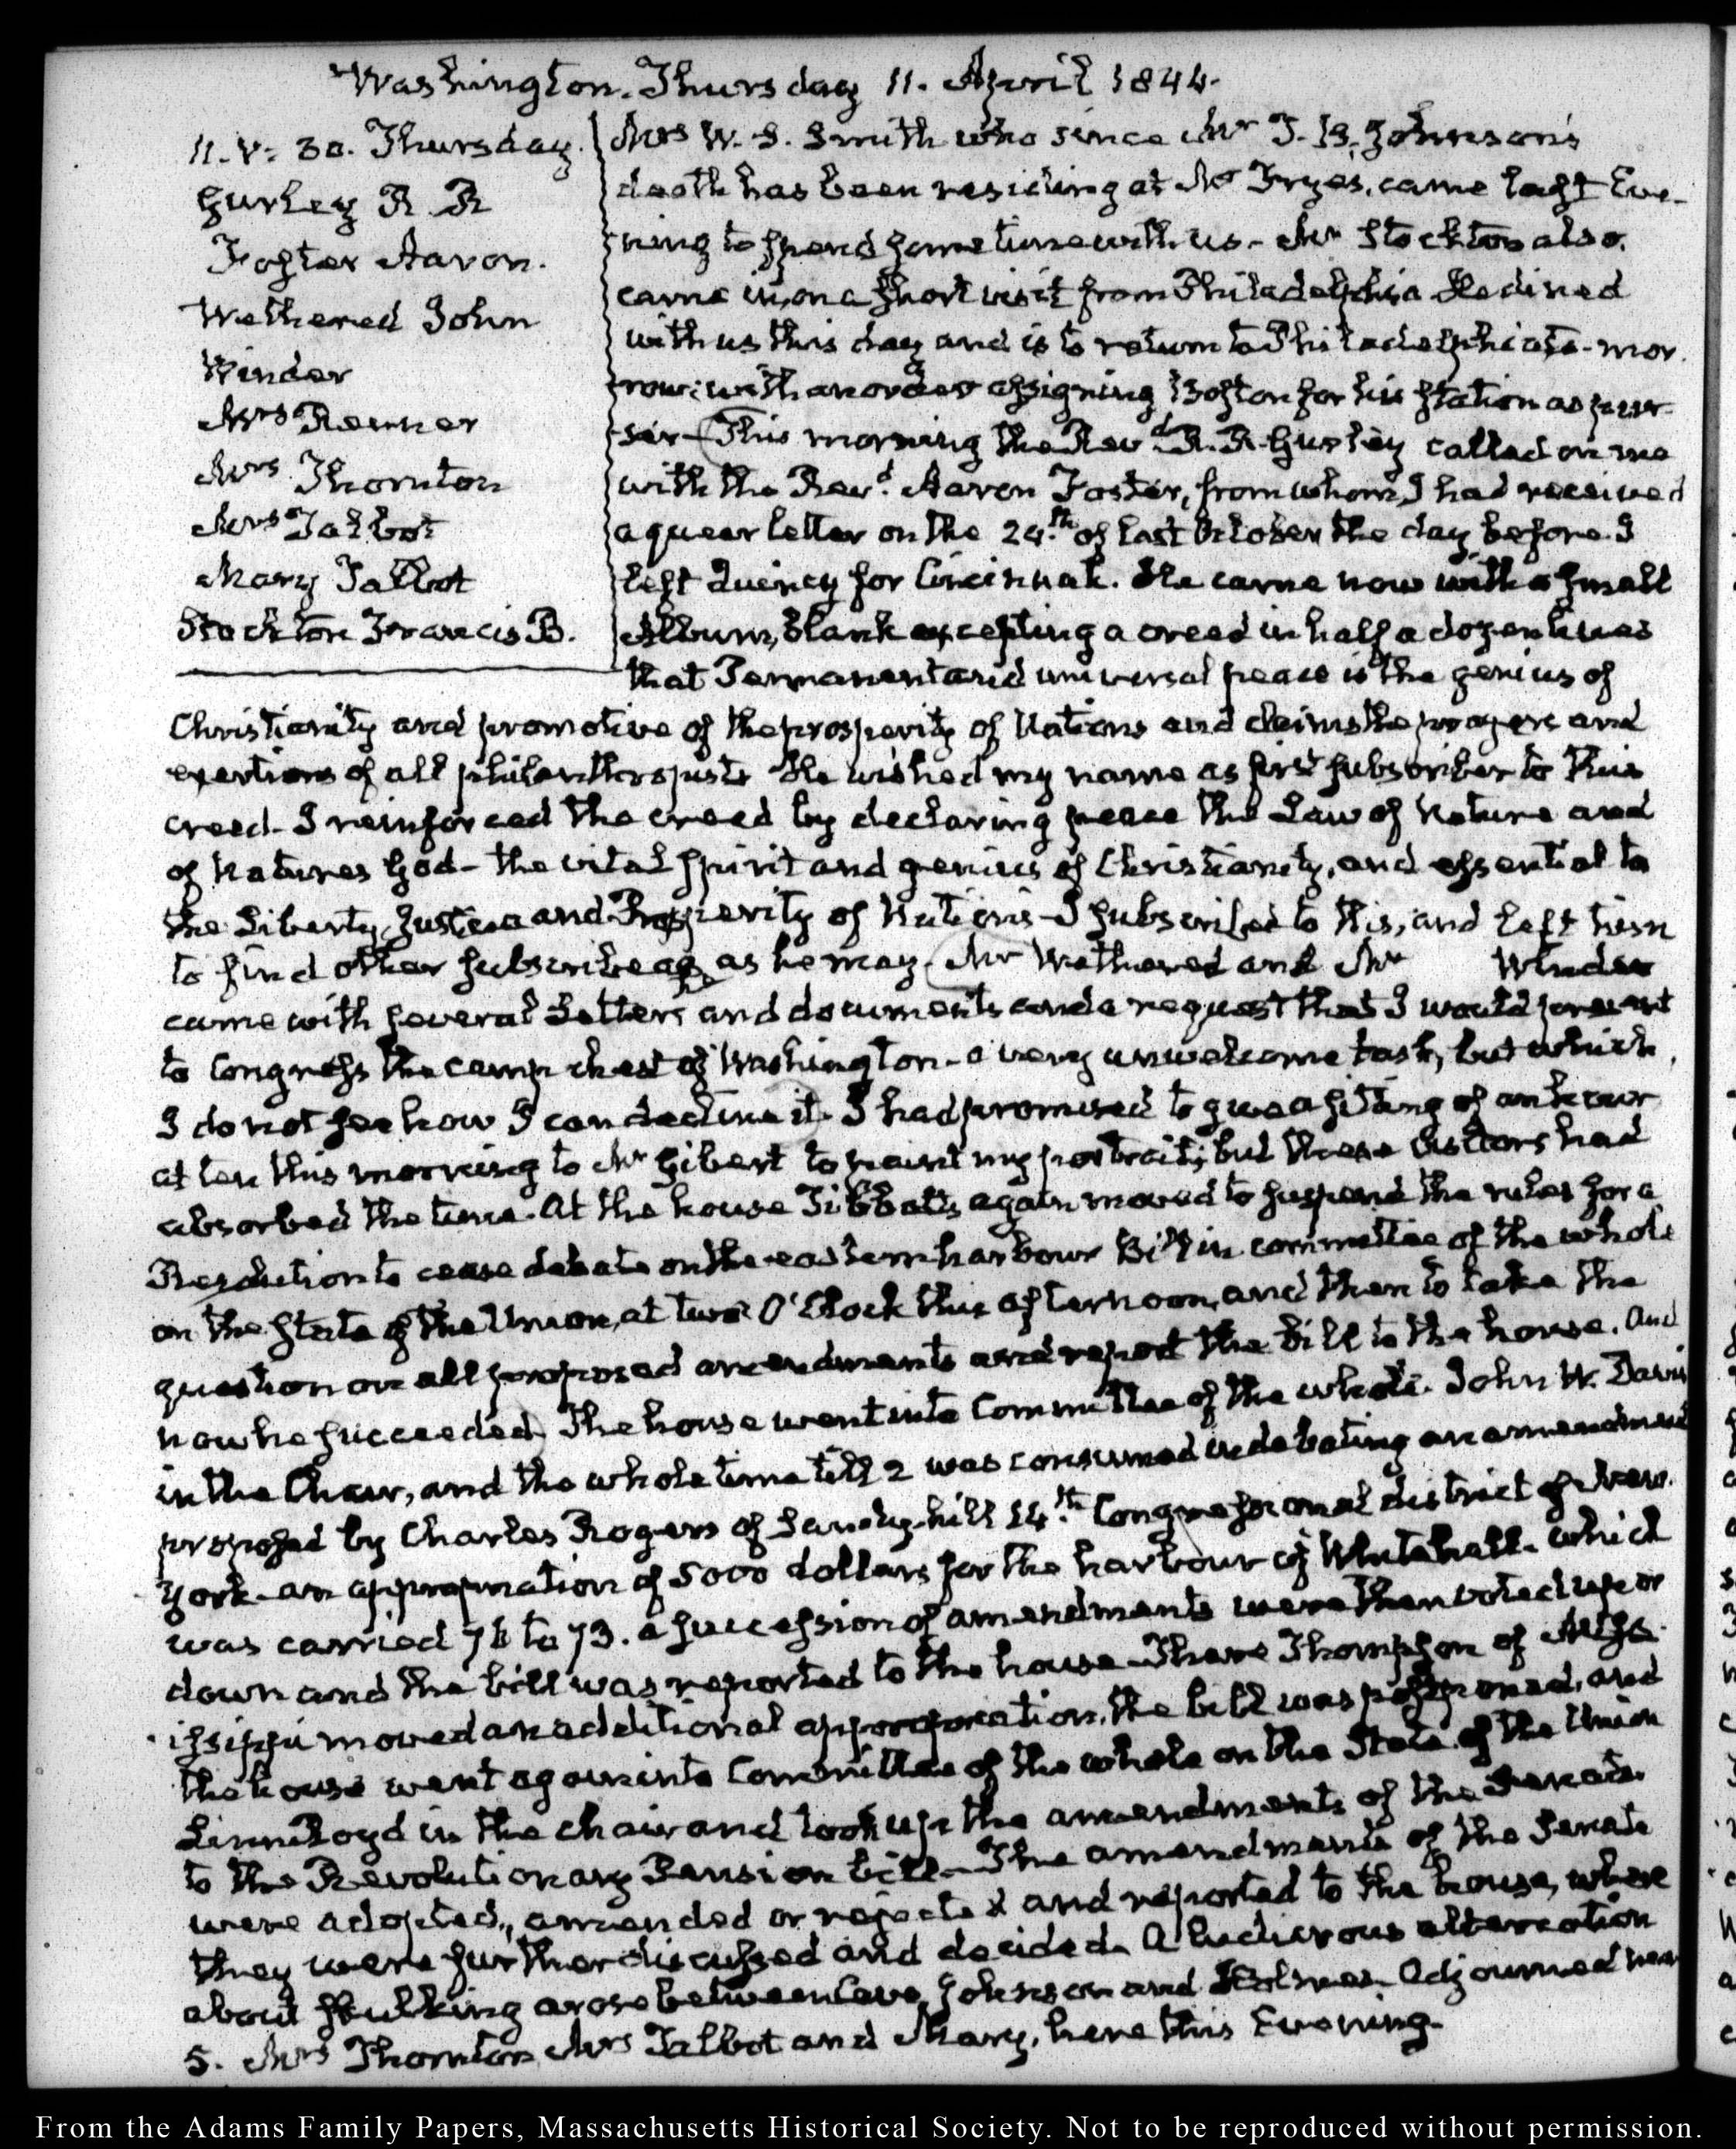 Washington. Thursday 11. April 1844.
11. V: 30. Thursday.
Gurley R. R
Foster Aaron.
Wethered John
Winder
Mrs Renner
Mrs Thornton
Mrs Talbot
Mary Talbot
Stockton Francis B.
Mrs W. S. Smith who since Mr T. B. Johnson's
death has been residing at Mr Fryes, came last Eve-
ning to spend some time with us. Mr Stockton also,
came in, on a short visit from Philadelphia He dined
with us this day and is to return to Philadelphia to-mor
row: with an order assigning Boston for his station as pur-
ser— This morning the Revd. R. R. Gurley called on me
with the Revd. Aaron Foster, from whom, I had received
a queer letter on the 24.th of last October the day before I
left Quincy for Cincinnati. He came now with a small
Album, blank excepting a creed in half a dozen lines
that Permanent and universal peace is the genius of
Christianity and promotive of the prosperity of Nations and claims the prayers and
exertions of all philanthropists He wished my name as first subscriber to this
creed. I reinforced the creed by declaring peace the Law of Nature and
of Natures God— the vital spirit and genius of Christianity, and essential to
the Liberty, Justice and Prosperity of Nations— I subscribed to this, and left him
to find other subscribers as he may. Mr Wethered and Mr Winder
came with several Letters and documents and a request that I would present
to Congress the camp chest of Washington— a very unwelcome task, but which,
I do not see how I can decline it. I had promised to give a sitting of an hour
at ten this morning to Mr Gibert to paint my portrait; but these visitors had
absorbed the time. At the house Tibbatts again moved to suspend the rules for a
Resolution to cease debate on the eastern harbour Bill in committee of the whole
on the state of the Union, at two O'Clock this afternoon, and then to take the
question on all proposed amendments and report the bill to the house. And
now he succeeded. The house went into Committee of the whole. John W. Davis
in the Chair, and the whole time till 2 was consumed in debating an amendment
proposed by Charles Rogers of Sandy-hill 14.th Congressional district of New.
York— an appropriation of 5000 dollars for the harbour of Whitehall. which
was carried 76 to 73. a succession of amendments were then voted up or
down and the bill was reported to the house— There Thompson of Miss-
issippi moved an additional appropriation, the bill was postponed, and
the house went again into Committee of the whole on the State of the Union
Linn Boyd in the chair and took up the amendments of the Senate
to the Revolutionary Pension bill— The amendments of the Senate
were adopted, amended or rejected and reported to the house, where
they were further discussed and decided. A ludicrous altercation
about skulking arose between Cave Johnson and Holmes. Adjourned near
5. Mrs Thornton Mrs Talbot and Mary, here this Evening.
From the Adams Family Papers, Massachusetts Historical Society. Not to be reproduced without permission.